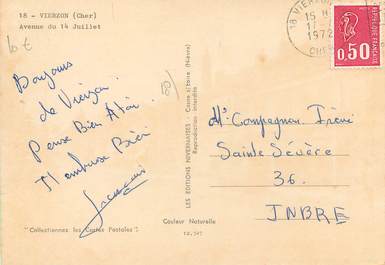 18 - VIERZON (Cher)
Avenue du 14 Juillet
Bonjours
de Vierzon.
Pense Bien A toi
"Collectionnez les Cartes Postales"
LES EDITIONS NIVERNAISES - Cosne s/Loire (Nièvre)
Reproduction interdite
Couleur Naturelle
18 VIERZON
15
1972
CHER
REPUBLIQUE FRANÇAISE
0,50
Compagnon Irène
Sainte Sévère
36.
INBRE